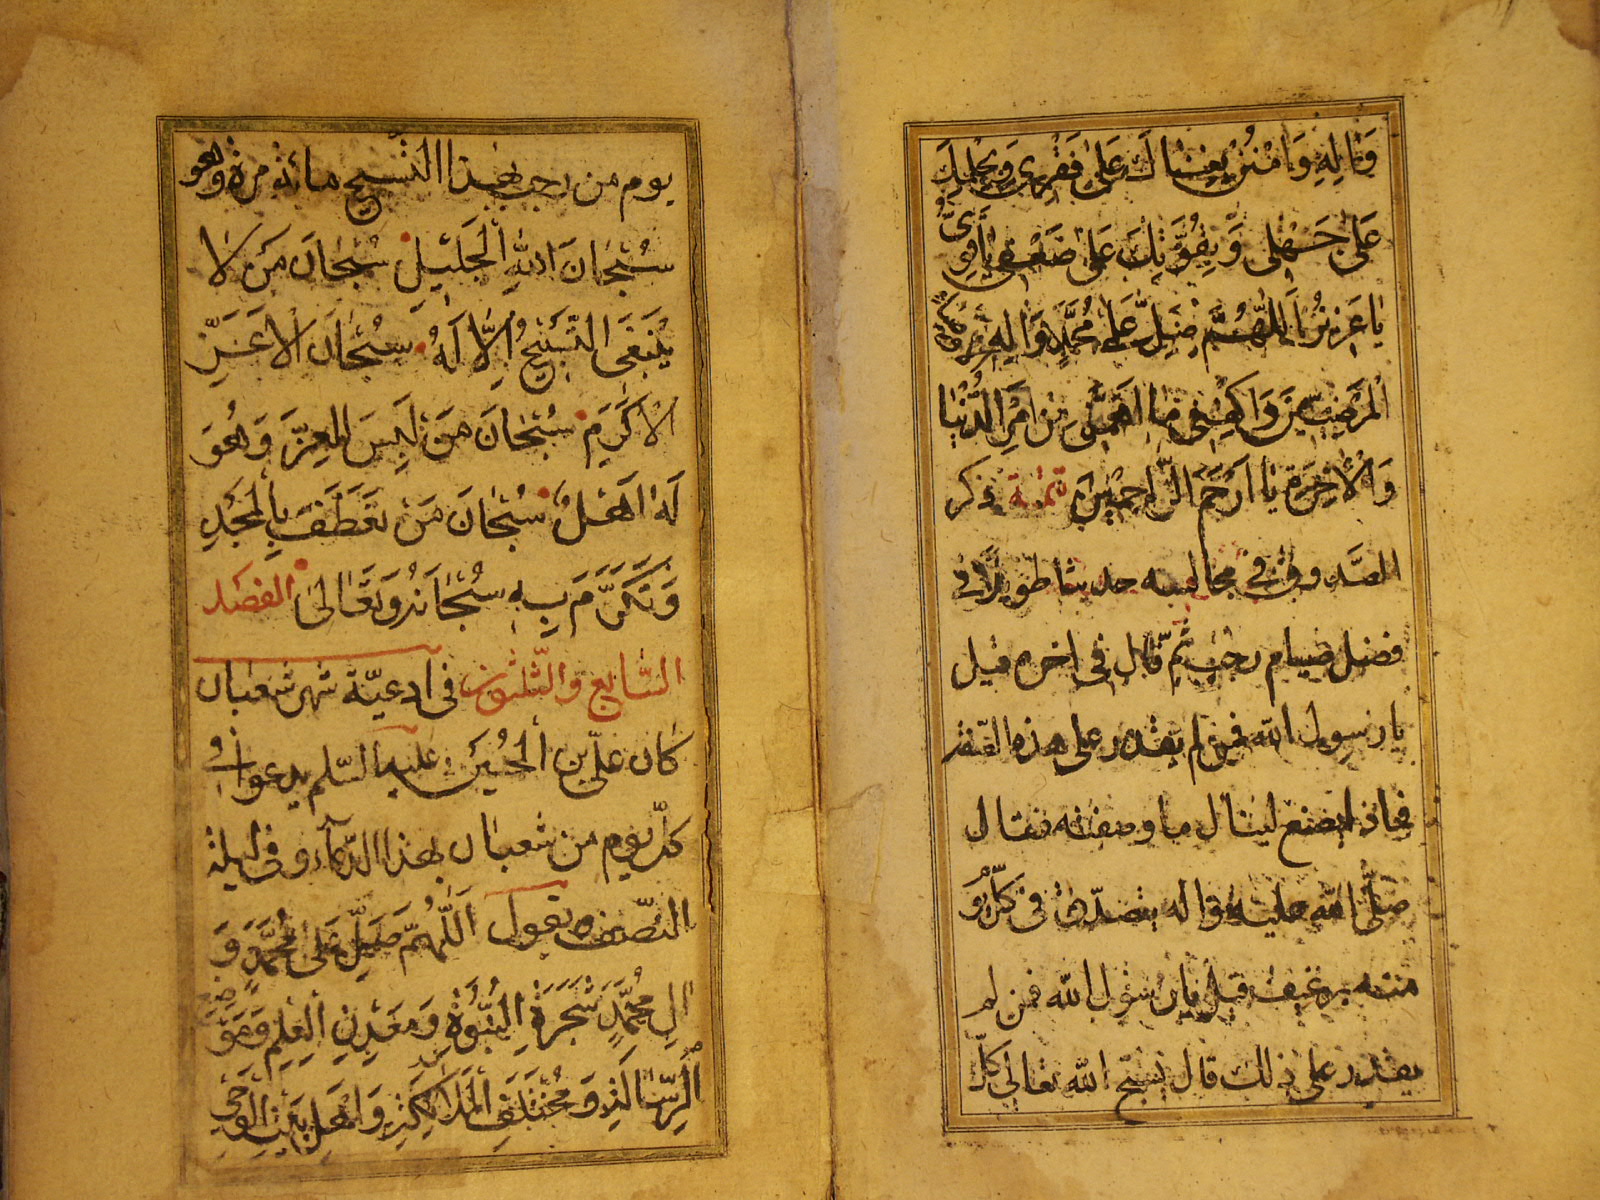 وَاٰلِهِ وَامْنُنْ بِغِنَاكَ عَلٰى فَقْرِي وَبِحِلْمِكَ
عَلٰى جَهْلِي وَبِقُوَّتِكَ عَلٰى ضَعْفِي يَا قَوِيُّ
يَا عَزِيزُ اَللّٰهُمَّ صَلِّ عَلٰى مُحَمَّدٍ وَاٰلِهِ
الْمَرْضِيِّينَ وَاكْفِنِي مَا اَهَمَّنِي مِنْ اَمْرِ الدُّنْيَا
وَالْاٰخِرَةِ يَا اَرْحَمَ الرَّاحِمِينَ تتمة ذكر
الصَّدوق في مجالسه حديثا طويلًا في
فضل صيام رجب ثم قال في اخره قيل
يا رسول الله فمن لم يقدر على هذه الصفة
فماذا يصنع لينال ما وصفته فقال
صلّى الله عليه واله يتصدّق في كلّ يو
منه برغيف قيل يا رسول الله فمن لم
يقدر على ذلك قال يسبح الله تعالى كلّ
يوم من رجب بهذا التّسبيح مائة مرة وهو
سُبْحَانَ اللهِ الْجَلِيلِ سُبْحَانَ مَنْ لَا
يَنْبَغِي التَّسْبِيحُ اِلَّا لَهُ سُبْحَانَ الْاَعَزِّ
الْاَكْرَمِ سُبْحَانَ مَنْ لَبِسَ الْعِزَّ وَهُوَ
لَهُ اَهْلٌ سُبْحَانَ مَنْ تَعَطَّفَ بِالْمَجْدِ
وَتَكَرَّمَ بِهِ سُبْحَانَهُ وَتَعَالٰى الفصل
السّابع والثّلثون في ادعيّة شهر شعبان
كان عليّ بن الحُسين عليهما السّلم يدعوا في
كلّ يوم من شعبان بهذا الدّعآء وفي ليلة
النّصف منه يقول اَللّٰهُمَّ صَلِّ عَلٰى مُحَمَّدٍ وَ
اٰلِ مُحَمَّدٍ شَجَرَةِ النُّبُوَّةِ وَمَعْدِنِ الْعِلْمِ وَمَوْضِعِ
الرِّسَالَةِ وَمُخْتَلَفِ الْمَلَائِكَةِ وَاَهْلِ بَيْتِ الْوَحْيِ